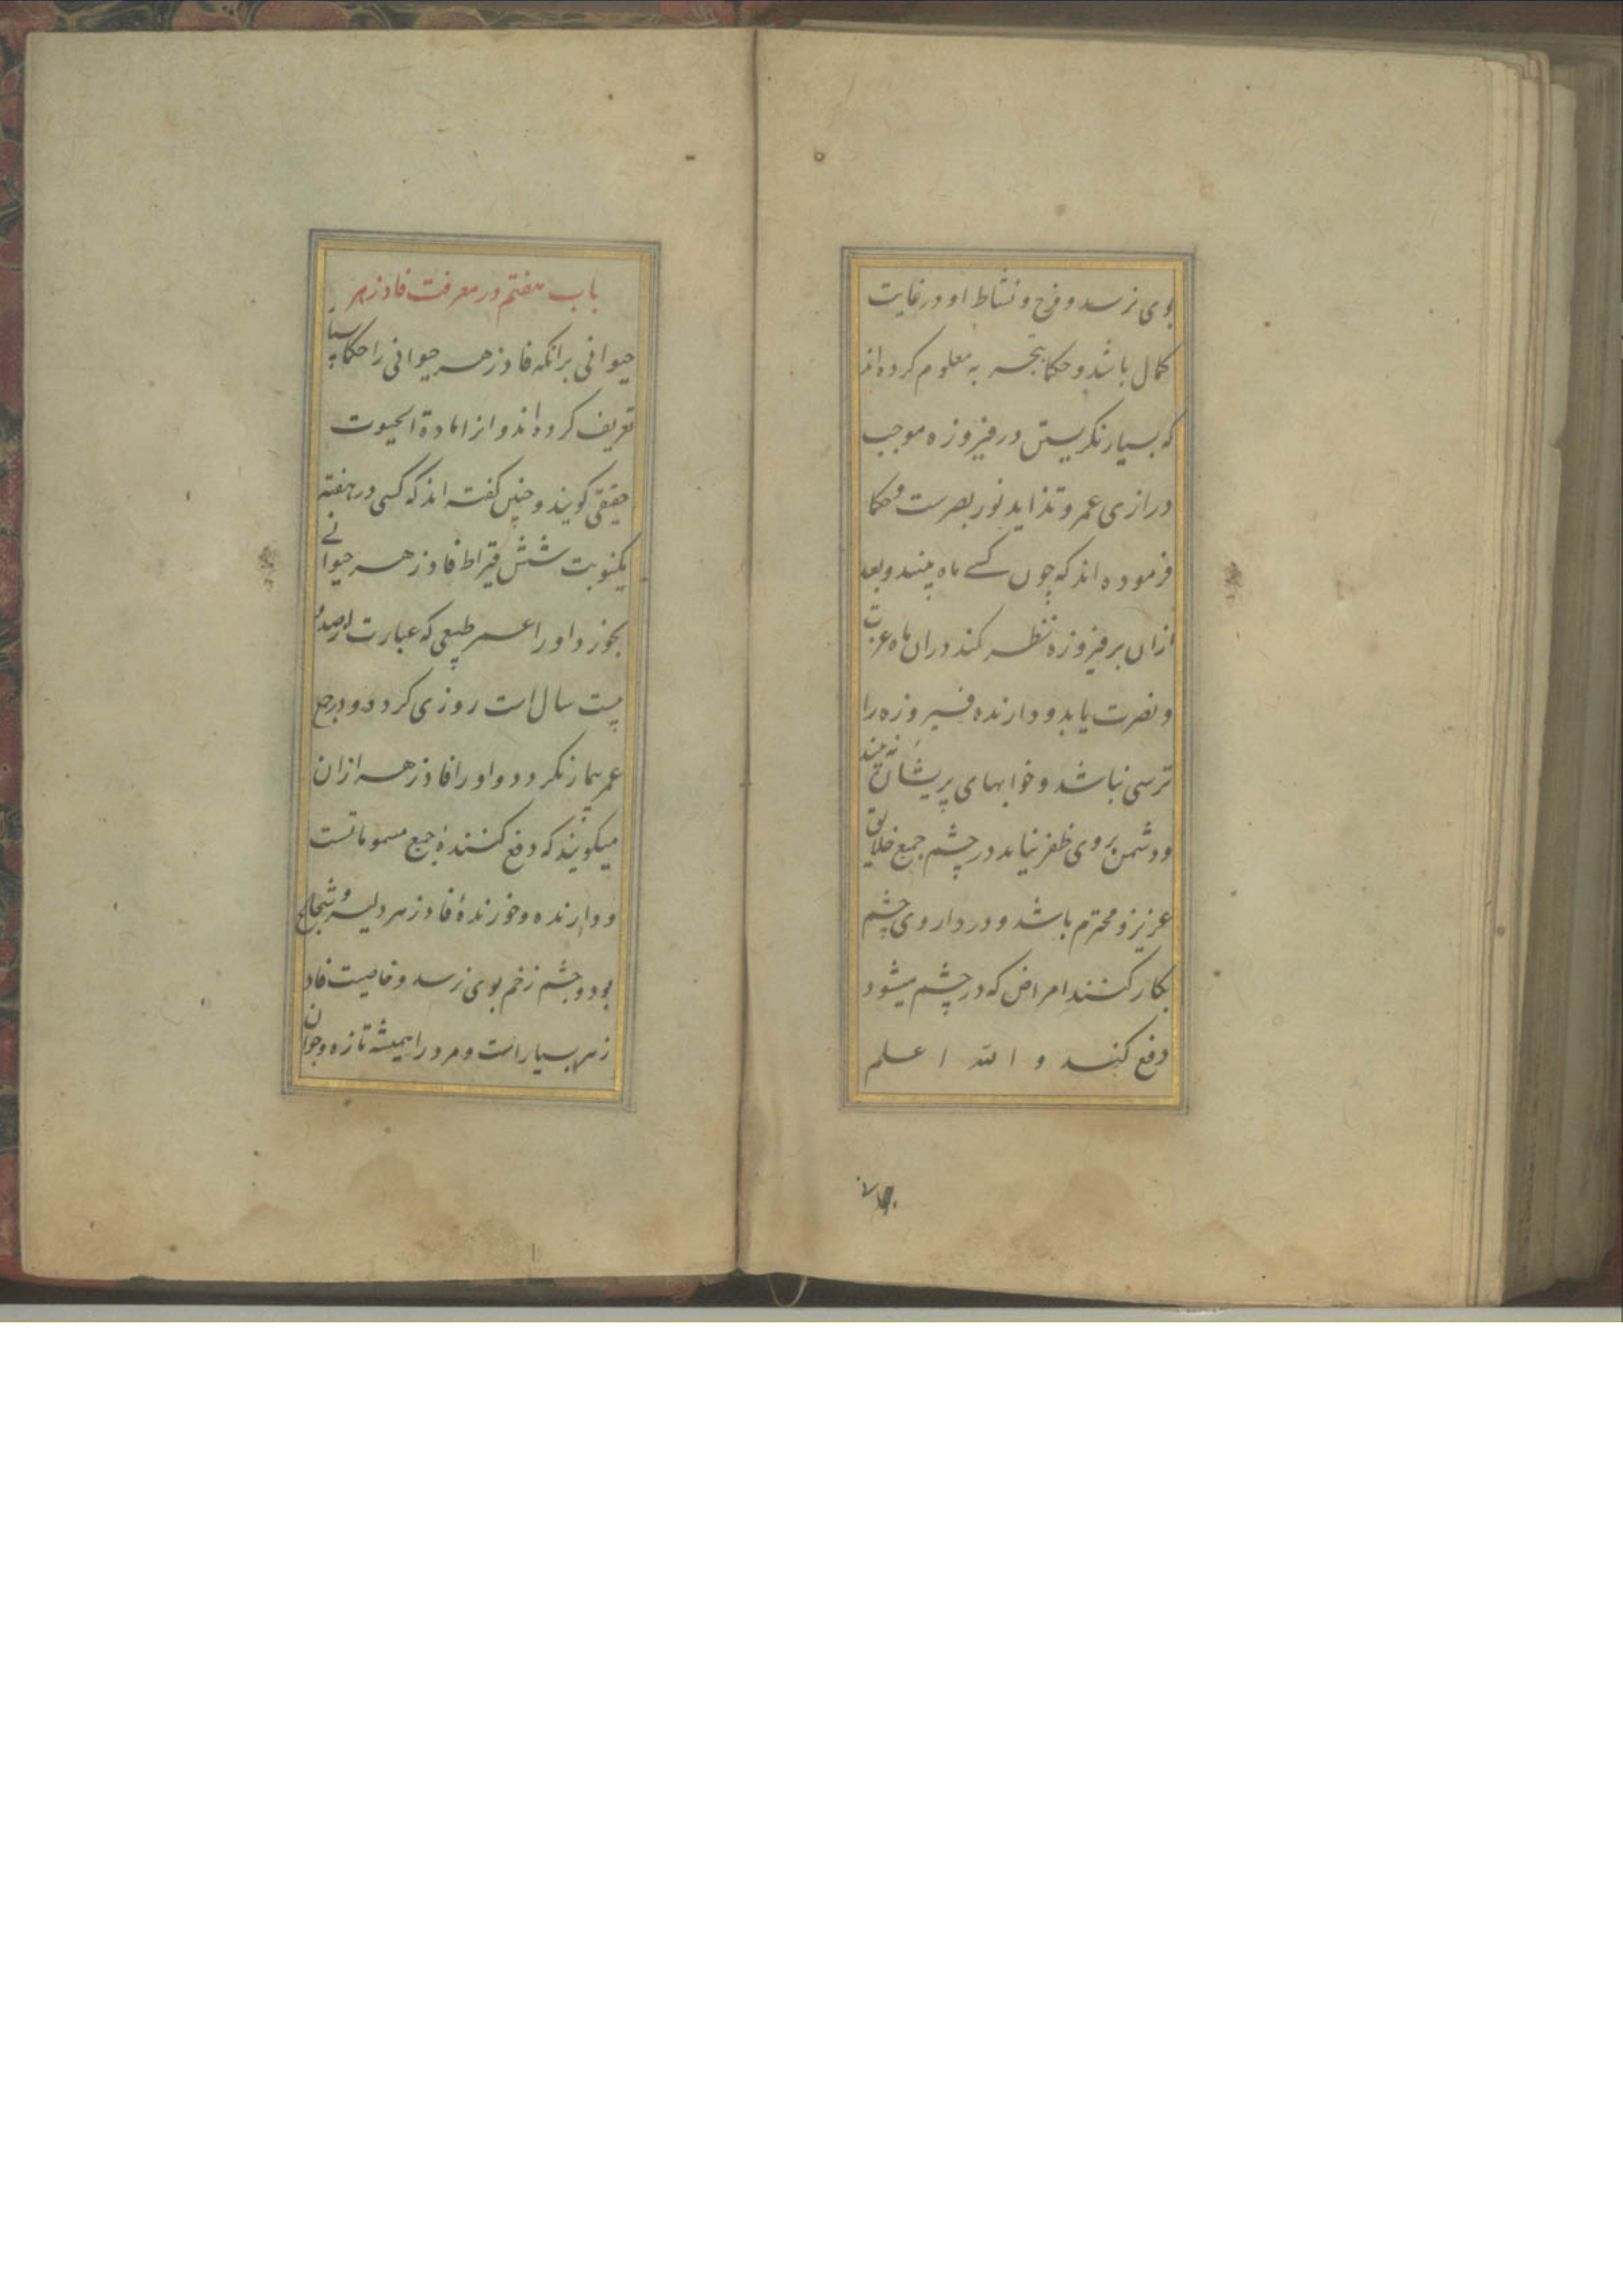 بوی نرسد و فرح و نشاط او در غایت
کمال باشد و حکما بتجربه معلوم کرده‌اند
که بسیار نگریستن در فیروزه موجب
درازی عمر و تزاید نور بصرست و حکما
فرموده‌اند که چون کسے ماه بیند و بعد
ازان بر فیروزه نظر کند دران ماه عزت
و نصرت یابد و دارنده فیروزه را
ترسی نباشد و خوابهای پریشان نه بیند
و دشمن بروی ظفر نیابد در چشم جمیع خلایق
عزیز و محترم باشد و در داروی چشم
بکار کنند امراض که در چشم میشود
دفع کند و الله اعلم
باب هفتم در معرفت فادزهر
حیوانی برانکه فادزهر حیوانی را حکما بسیار
تعریف کرده‌اند و انرا مادة الحیوت
حقیقی کویند و چنین کفته‌اند که کسی در هفته
یکنوبت شش قیراط فادزهر حیوانے
بخورد او را عمر طبیعی که عبارت از صد و
بیست سال است روزی کردد و در جمیع
عمر بیمار نکردد و او را فادزهر ازان
میکویند که دفع کنندهٔ جمیع مسموماتست
و دارنده و خورندهٔ فادزهر دلیر و شجاع
بود و چشم زخم بوی نرسد و خاصیت فاد
زهر بسیار است و مرد را همیشه تازه و جوان